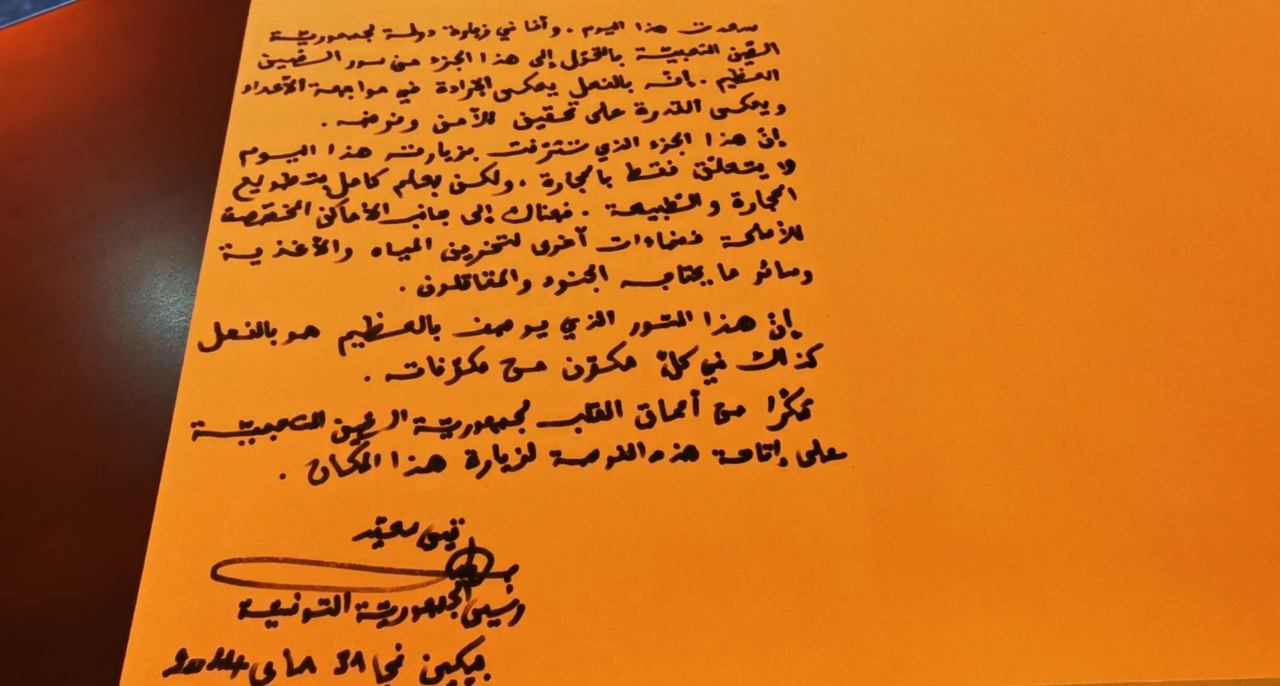 سعدت هذا اليوم. وأنا في زيارة دولة لجمهوريّة
الصّين الشعبيّة بالتحوّل إلى هذا الجزء من سور الصّين
العظيم. إنّه بالفعل يعكس الإرادة في مواجهة الأعداء
ويعكس القدرة على تحقيق الأمن وفرضه.
إنّ هذا الجزء الذي تشرّفت بزيارته هذا اليوم
لا يتعلّق فقط بالحجارة. ولكن بعلم كامل يتطويع
الحجارة والطّبيعة. فهناك إلى جانب الأماكن المخصّصة
للأسلحة فضاءات أخرى لتخزين المياه والأغذية
وسائر ما يحتاجه الجنود والمقاتلون.
إنّ هذا السّور الذي يوصف بالعظيم هو بالفعل
كذلك في كلّ مكوّن من مكوّناته.
شكرًا من أعماق القلب لجمهوريّة الصّين الشعبيّة
على إتاحة هذه الفرصة لزيارة هذا المكان.
قيس سعيّد
رئيس الجمهوريّة التونسية
بيكين في 31 ماي 2024